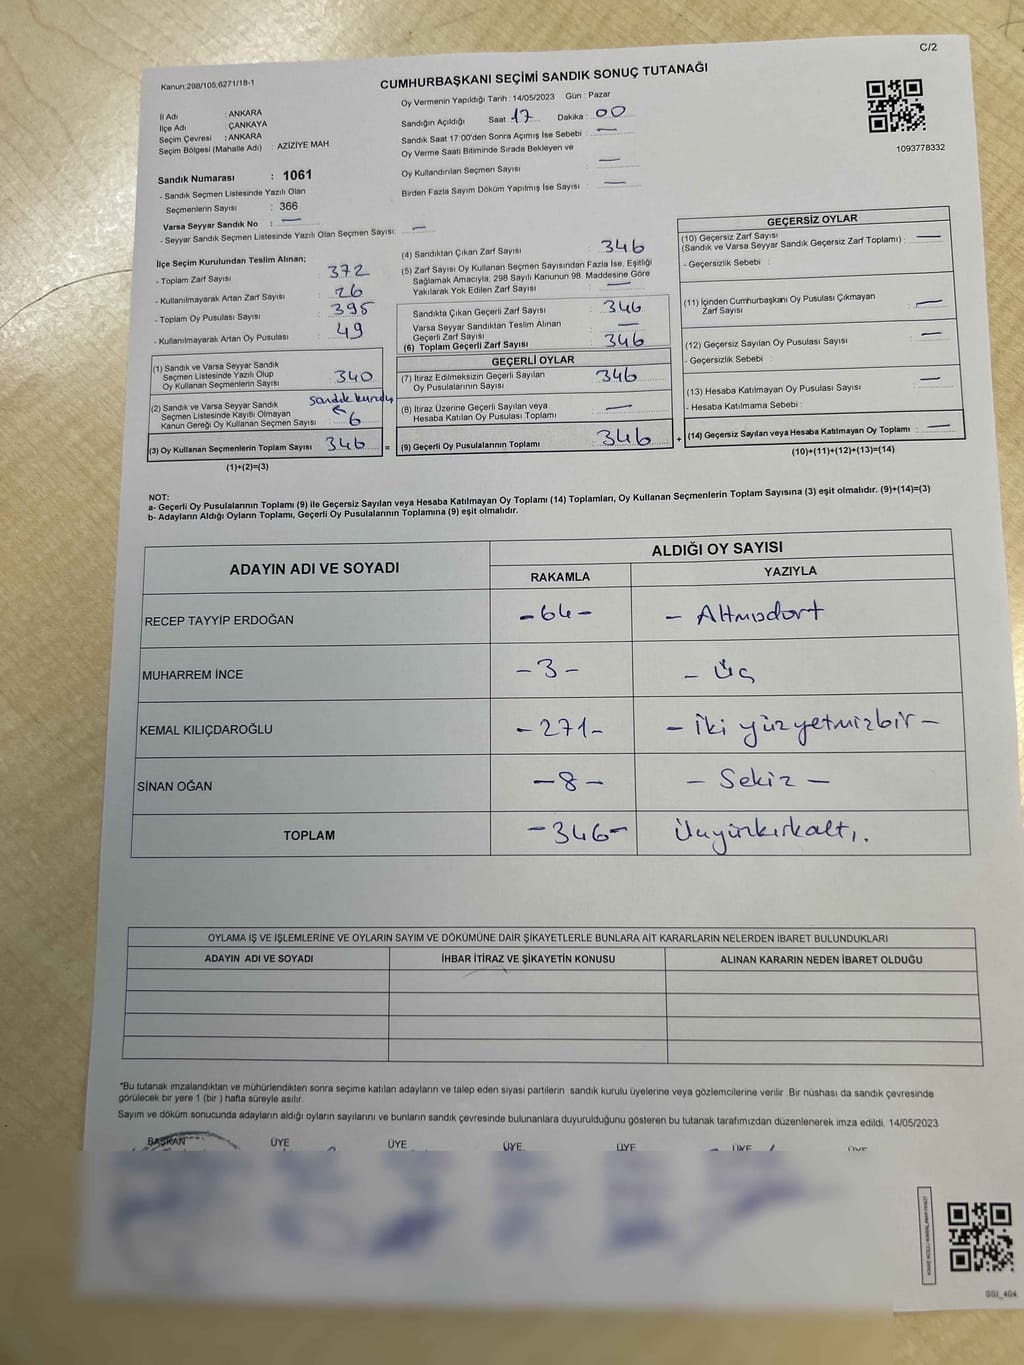 C/2
Kanun:298/105,6271/18-1
CUMHURBAŞKANI SEÇİMİ SANDIK SONUÇ TUTANAĞI
İl Adı : ANKARA
İlçe Adı : ÇANKAYA
Seçim Çevresi : ANKARA
Seçim Bölgesi (Mahalle Adı) : AZİZİYE MAH.
Oy Vermenin Yapıldığı Tarih : 14/05/2023 Gün : Pazar
Sandığın Açıldığı Saat : 17 Dakika : 00
Sandık Saat 17:00'den Sonra Açımış İse Sebebi : —
Oy Verme Saati Bitiminde Sırada Bekleyen ve
Oy Kullandırılan Seçmen Sayısı : —
Birden Fazla Sayım Döküm Yapılmış İse Sayısı : —
1093778332
Sandık Numarası : 1061
- Sandık Seçmen Listesinde Yazılı Olan
Seçmenlerin Sayısı : 366
Varsa Seyyar Sandık No : —
- Seyyar Sandık Seçmen Listesinde Yazılı Olan Seçmen Sayısı: —
İlçe Seçim Kurulundan Teslim Alınan;
- Toplam Zarf Sayısı : 372
- Kullanılmayarak Artan Zarf Sayısı : 26
- Toplam Oy Pusulası Sayısı : 395
- Kullanılmayarak Artan Oy Pusulası : 49
(1) Sandık ve Varsa Seyyar Sandık
Seçmen Listesinde Yazılı Olup
Oy Kullanan Seçmenlerin Sayısı : 340
sandık kurulu
(2) Sandık ve Varsa Seyyar Sandık
Seçmen Listesinde Kayıtlı Olmayan
Kanun Gereği Oy Kullanan Seçmen Sayısı : 6
(3) Oy Kullanan Seçmenlerin Toplam Sayısı : 346 =
(1)+(2)=(3)
(4) Sandıktan Çıkan Zarf Sayısı : 346
(5) Zarf Sayısı Oy Kullanan Seçmen Sayısından Fazla İse, Eşitliği
Sağlamak Amacıyla, 298 Sayılı Kanunun 98. Maddesine Göre
Yakılarak Yok Edilen Zarf Sayısı : —
Sandıkta Çıkan Geçerli Zarf Sayısı : 346
Varsa Seyyar Sandıktan Teslim Alınan
Geçerli Zarf Sayısı : —
(6) Toplam Geçerli Zarf Sayısı : 346
GEÇERLİ OYLAR
(7) İtiraz Edilmeksizin Geçerli Sayılan
Oy Pusulalarının Sayısı : 346
(8) İtiraz Üzerine Geçerli Sayılan veya
Hesaba Katılan Oy Pusulası Toplamı : —
(9) Geçerli Oy Pusulalarının Toplamı : 346 +
GEÇERSİZ OYLAR
(10) Geçersiz Zarf Sayısı
(Sandık ve Varsa Seyyar Sandık Geçersiz Zarf Toplamı) : —
- Geçersizlik Sebebi :
(11) İçinden Cumhurbaşkanı Oy Pusulası Çıkmayan
Zarf Sayısı : —
(12) Geçersiz Sayılan Oy Pusulası Sayısı : —
- Geçersizlik Sebebi :
(13) Hesaba Katılmayan Oy Pusulası Sayısı : —
- Hesaba Katılmama Sebebi :
(14) Geçersiz Sayılan veya Hesaba Katılmayan Oy Toplamı : —
(10)+(11)+(12)+(13)=(14)
NOT:
a- Geçerli Oy Pusulalarının Toplamı (9) ile Geçersiz Sayılan veya Hesaba Katılmayan Oy Toplamı (14) Toplamları, Oy Kullanan Seçmenlerin Toplam Sayısına (3) eşit olmalıdır. (9)+(14)=(3)
b- Adayların Aldığı Oyların Toplamı, Geçerli Oy Pusulalarının Toplamına (9) eşit olmalıdır.
ADAYIN ADI VE SOYADI ALDIĞI OY SAYISI
RAKAMLA YAZIYLA
RECEP TAYYİP ERDOĞAN -64- - Altmışdört
MUHARREM İNCE -3- - Üç
KEMAL KILIÇDAROĞLU -271- - İki yüzyetmizbir -
SİNAN OĞAN -8- - Sekiz -
TOPLAM -346- Üçyüzkırkaltı.
OYLAMA İŞ VE İŞLEMLERİNE VE OYLARIN SAYIM VE DÖKÜMÜNE DAİR ŞİKAYETLERLE BUNLARA AİT KARARLARIN NELERDEN İBARET BULUNDUKLARI
ADAYIN ADI VE SOYADI İHBAR İTİRAZ VE ŞİKAYETİN KONUSU ALINAN KARARIN NEDEN İBARET OLDUĞU
*Bu tutanak imzalandıktan ve mühürlendikten sonra seçime katılan adayların ve talep eden siyasi partilerin sandık kurulu üyelerine veya gözlemcilerine verilir. Bir nüshası da sandık çevresinde
görülecek bir yere 1 (bir ) hafta süreyle asılır.
Sayım ve döküm sonucunda adayların aldığı oyların sayılarını ve bunların sandık çevresinde bulunanlara duyurulduğunu gösteren bu tutanak tarafımızdan düzenlenerek imza edildi. 14/05/2023
BAŞKAN ÜYE ÜYE ÜYE ÜYE ÜYE ÜYE
SSI_404